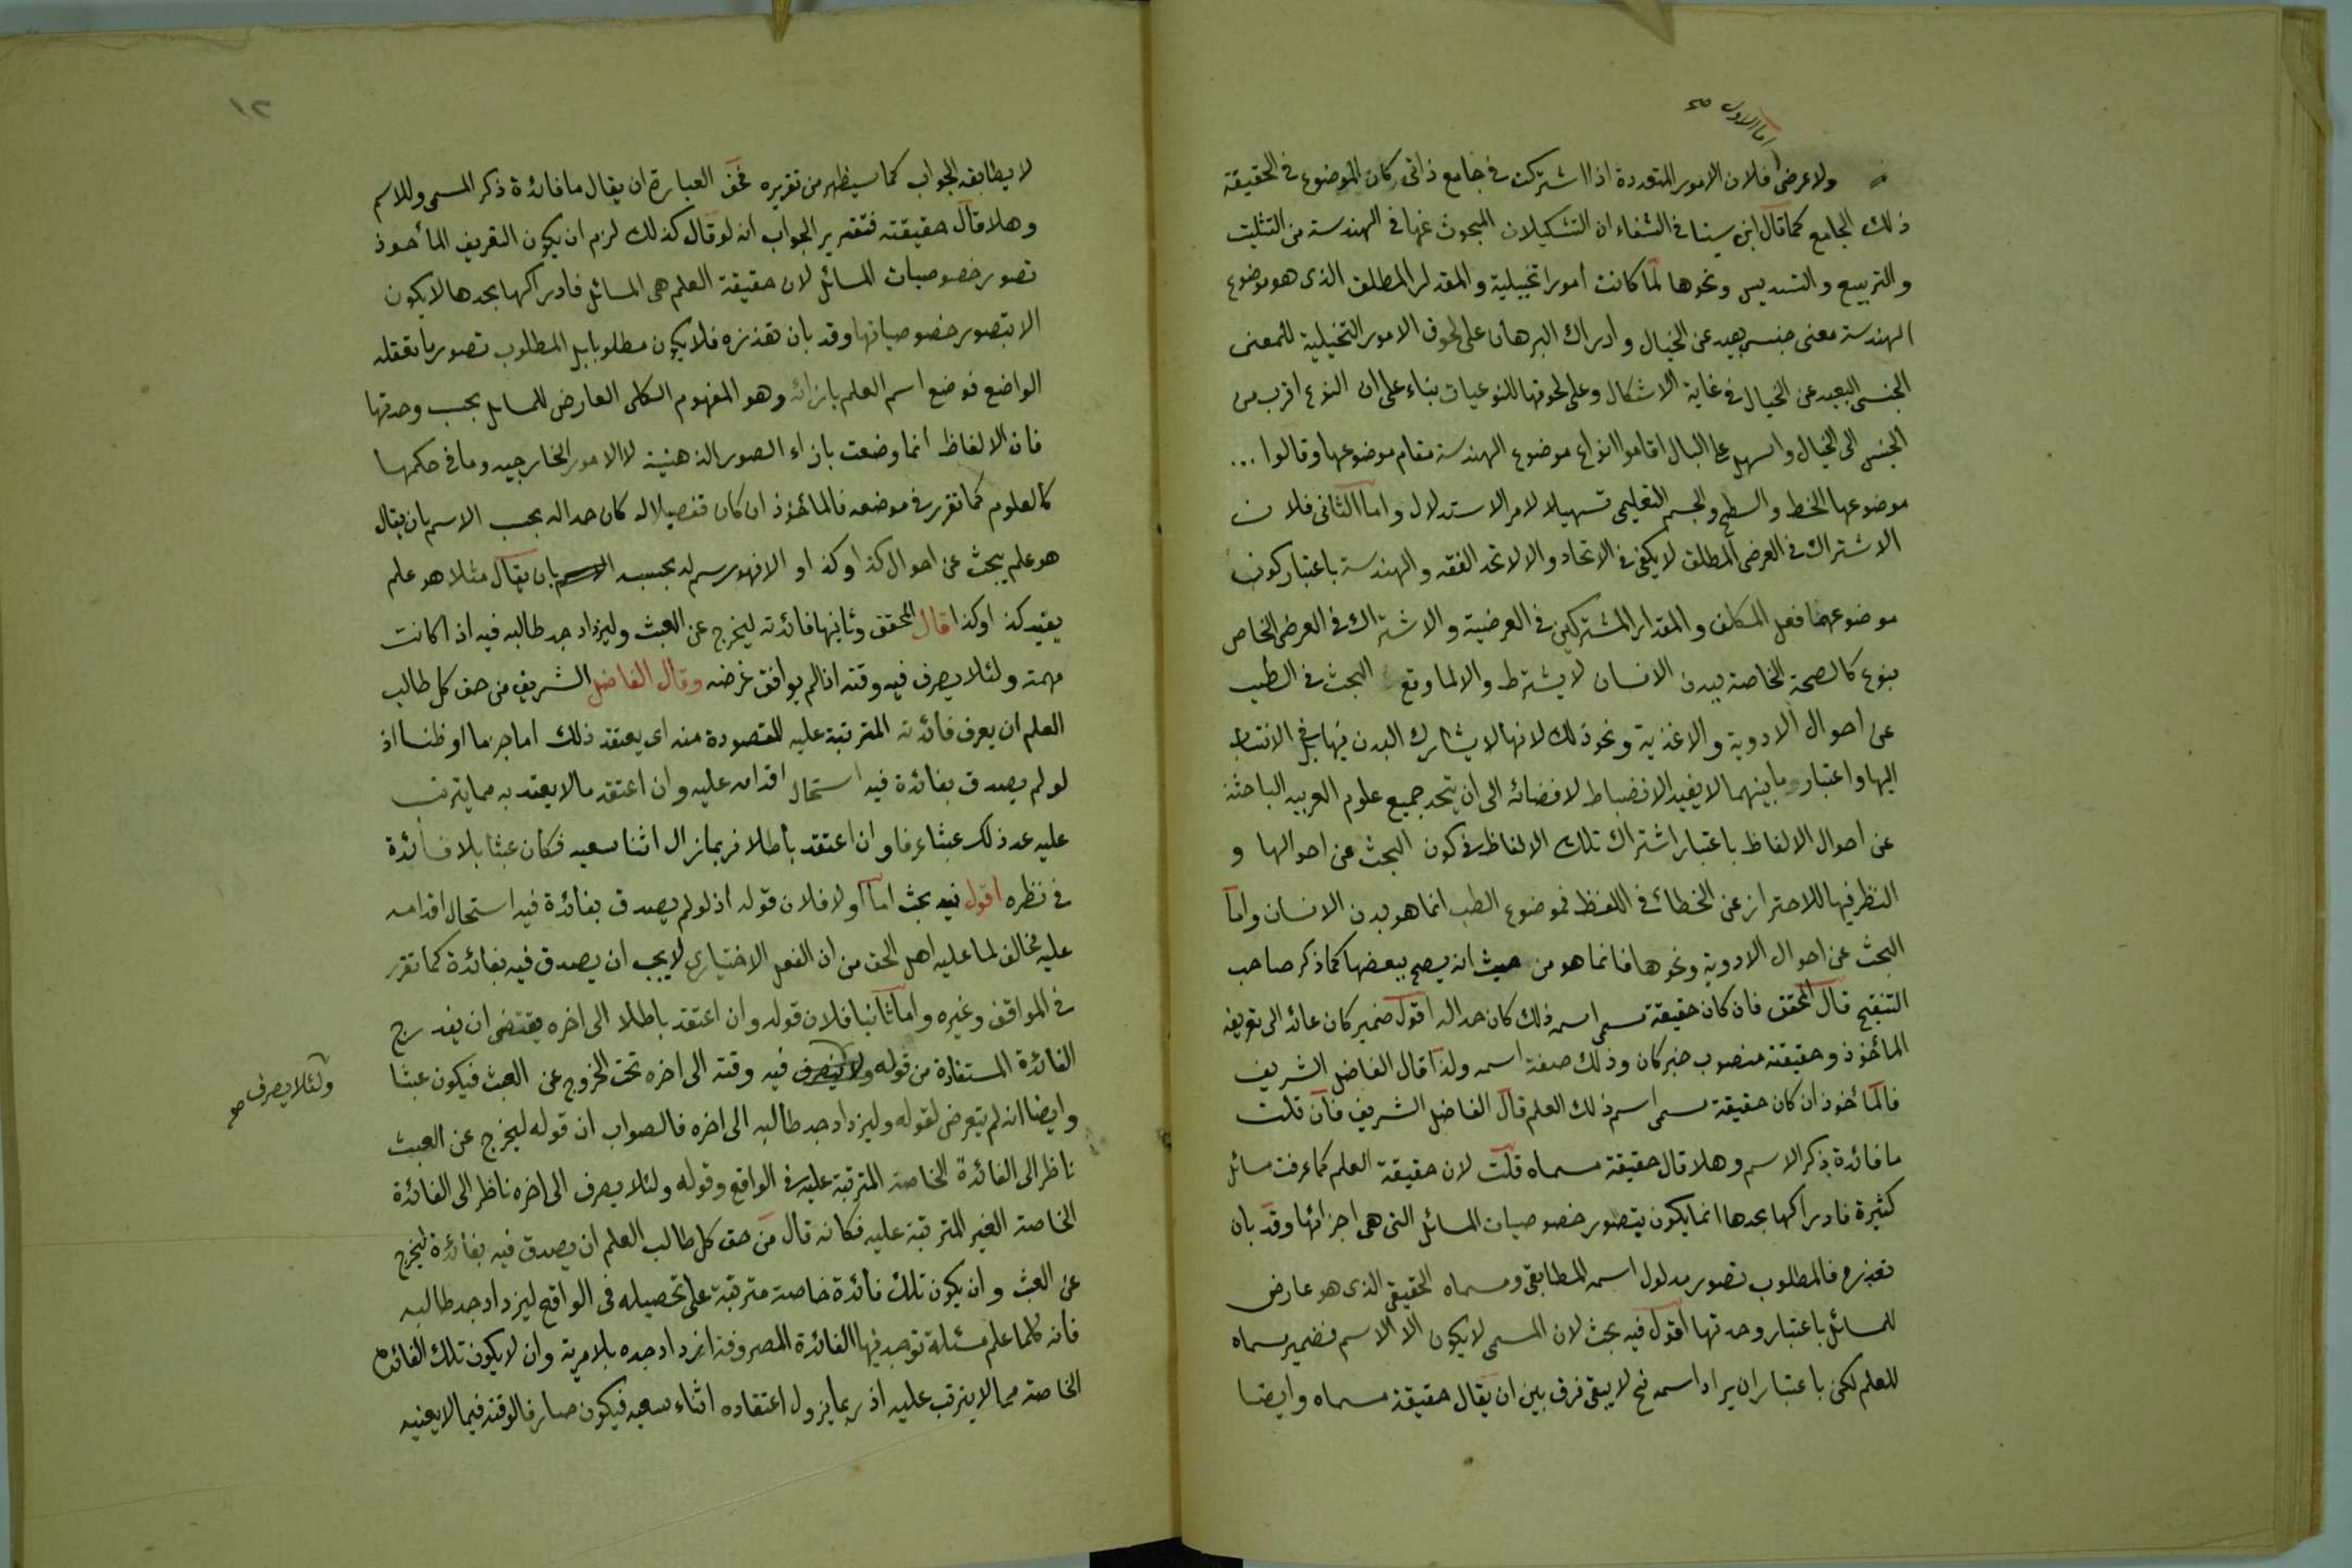 اما الاول صح
ولا عرضى فلان الامور المتعددة اذا اشتركت فى جامع ذاتى كان الموضوع فى الحقيقة
ذلك الجامع كما قال ابن سينا فى الشفاء ان التشكيلات المبحوث عنها فى الهندسة من التثليث
والتربيع والتسديس ونحوها لما كانت امورا تخييلية والمقدار المطلق الذى هو موضوع
الهندسة معنى جنسى بعيد عن الخيال وادراك البرهان على لحوق الامور التخيلية للمعنى
الجنسى البعيد عن الخيال فى غاية الاشكال وعلى لحوقها للنوعيات بناء على ان النوع اقرب من
الجنس الى الخيال واسهل على البال اقاموا انواع موضوع الهندسة مقام موضوعها وقالوا ...
موضوعها الخط والسطح والجسم التعليمى تسهيلا لامر الاستدلال واما الثانى فلان
الاشتراك فى العرض المطلق لا يكفى فى الاتحاد والا لاتحد الفقه والهندسة باعتبار كون
موضوعهما فعل المكلف والمقدار المشتركين فى العرضية والاشتراك فى العرض الخاص
بنوع كالصحة الخاصة ببدن الانسان لا يشترط والا لما وقع البحث فى الطب
عن احوال الادوية والاغذية ونحو ذلك لانها لا يشارك البدن فيها بل فى الانتساب
اليها واعتبار ما بينهما لا يفيد الانضباط لافضائه الى ان يتحد جميع علوم العربيه الباحثة
عن احوال الالفاظ باعتبار اشتراك تلك الالفاظ فى كون البحث عن احوالها و
النظر فيها للاحتراز عن الخطائ فى اللفظ فموضوع الطب انما هو بدن الانسان واما
البحث عن احوال الادوية ونحوها فانما هو من حيث انه يصح ببعضها كما ذكر صاحب
التنقيح قال المحقق فان كان حقيقة مسمى اسمه ذلك كان حدا له اقول ضمير كان عائد الى تعريفه
المأخوذ وحقيقته منصوب خبر كان وذلك صفة اسمه ولذا قال الفاضل الشريف
فالمأخوذ ان كان حقيقة مسمى اسم ذلك العلم قال الفاضل الشريف فان قلت
ما فائدة بذكر الاسم وهلا قال حقيقة مسماه قلت لان حقيقة العلم كما عرفت مسائل
كثيرة فادراكها بحدها انما يكون بتصور خصوصيات المسائل التى هى اجزائها وقد بان
تعذره فالمطلوب تصور مدلول اسمه المطابقى ومسماه الحقيقى الذى هو عارض
للمسائل باعتبار وحدتها اقول فيه بحث لان المسمى لا يكون الا الاسم فضمير مسماه
للعلم لكن باعتبار ان يراد اسمه فح لا يبقى فرق بين ان يقال حقيقة مسماه وايضا
١٢
لا يطابقه الجواب كما سيظهر من تقريره فحق العبارة ان يقال ما فائدة ذكر المسمى وللاسم
وهلا قال حقيقته فتقرير الجواب انه لو قال كذلك لزم ان يكون التعريف المأخوذ
تصور خصوصيات المسائل لان حقيقة العلم هى المسائل فادراكها بحدها لا يكون
الا بتصور خصوصياتها وقد بان تعذره فلا يكون مطلوبا بل المطلوب تصور ما تعقله
الواضع فوضع اسم العلم بازائه وهو المفهوم الكلى العارض للمسائل بحسب وحدتها
فان الالفاظ انما وضعت بازاء الصور الذهنية لا الامور الخارجيه وما فى حكمها
كالعلوم كما تقرر فى موضعه فالمأخوذ ان كان تفصيلا له كان حدا له بحسب الاسم بان يقال
هو علم يبحث عن احوال كذا وكذا والا فهو رسم له بحسبه بان يقال مثلا هو علم
يفيد كذا وكذا قال المحقق وثانيها فائدته ليخرج عن العبث وليزداد جد طالبه فيه اذا كانت
مهمة ولئلا يصرف فيه وقته اذا لم يوافق غرضه وقال الفاضل الشريف من حق كل طالب
العلم ان يعرف فائدته المترتبة عليه المقصودة منه اى يعتقد ذلك اما جزما او ظنا اذ
لو لم يصدق بفائدة فيه استحال اقدامه عليه وان اعتقد ما لا يعتد به مما يترتب
عليه عد ذلك عبثا عرفا وان اعتقد باطلا فربما زال اثناء سعيه فكان عبثا بلا فائدة
فى نظره اقول فيه بحث اما اولا فلان قوله اذ لو لم يصدق بفائدة فيه استحال اقدامه
عليه مخالف لما عليه اهل الحق من ان الفعل الاختيارى لا يجب ان يصدق فيه بفائدة كما تقرر
فى المواقف وغيره واما ثانيا فلان قوله وان اعتقد باطلا الى اخره يقتضى ان يندرج
الفائدة المستفادة من قوله ولا يصرف فيه وقته الى اخره تحت الخروج عن العبث فيكون عبثا
ولئلا يصرف صح
وايضا انه لم يتعرض لقوله وليزداد جد طالبه الى اخره فالصواب ان قوله ليخرج عن العبث
ناظر الى الفائدة الخاصة المترتبة عليه فى الواقع وقوله ولئلا يصرف الى اخره ناظر الى الفائدة
الخاصة الغير المترتبة عليه فكانه قال من حق كل طالب العلم ان يصدق فيه بفائدة ليخرج
عن العبث وان يكون تلك فائدة خاصة مترتبة على تحصيله فى الواقع ليزداد جد طالبه
فانه كلما علم مسئلة توجد فيها الفائدة المصروفة ازداد جده بلا مرية وان لا يكون تلك الفائدة
الخاصة مما لا يترتب عليه اذ ربما يزول اعتقاده اثناء سعيه فيكون صارفا لوقته فيما لا يعنيه